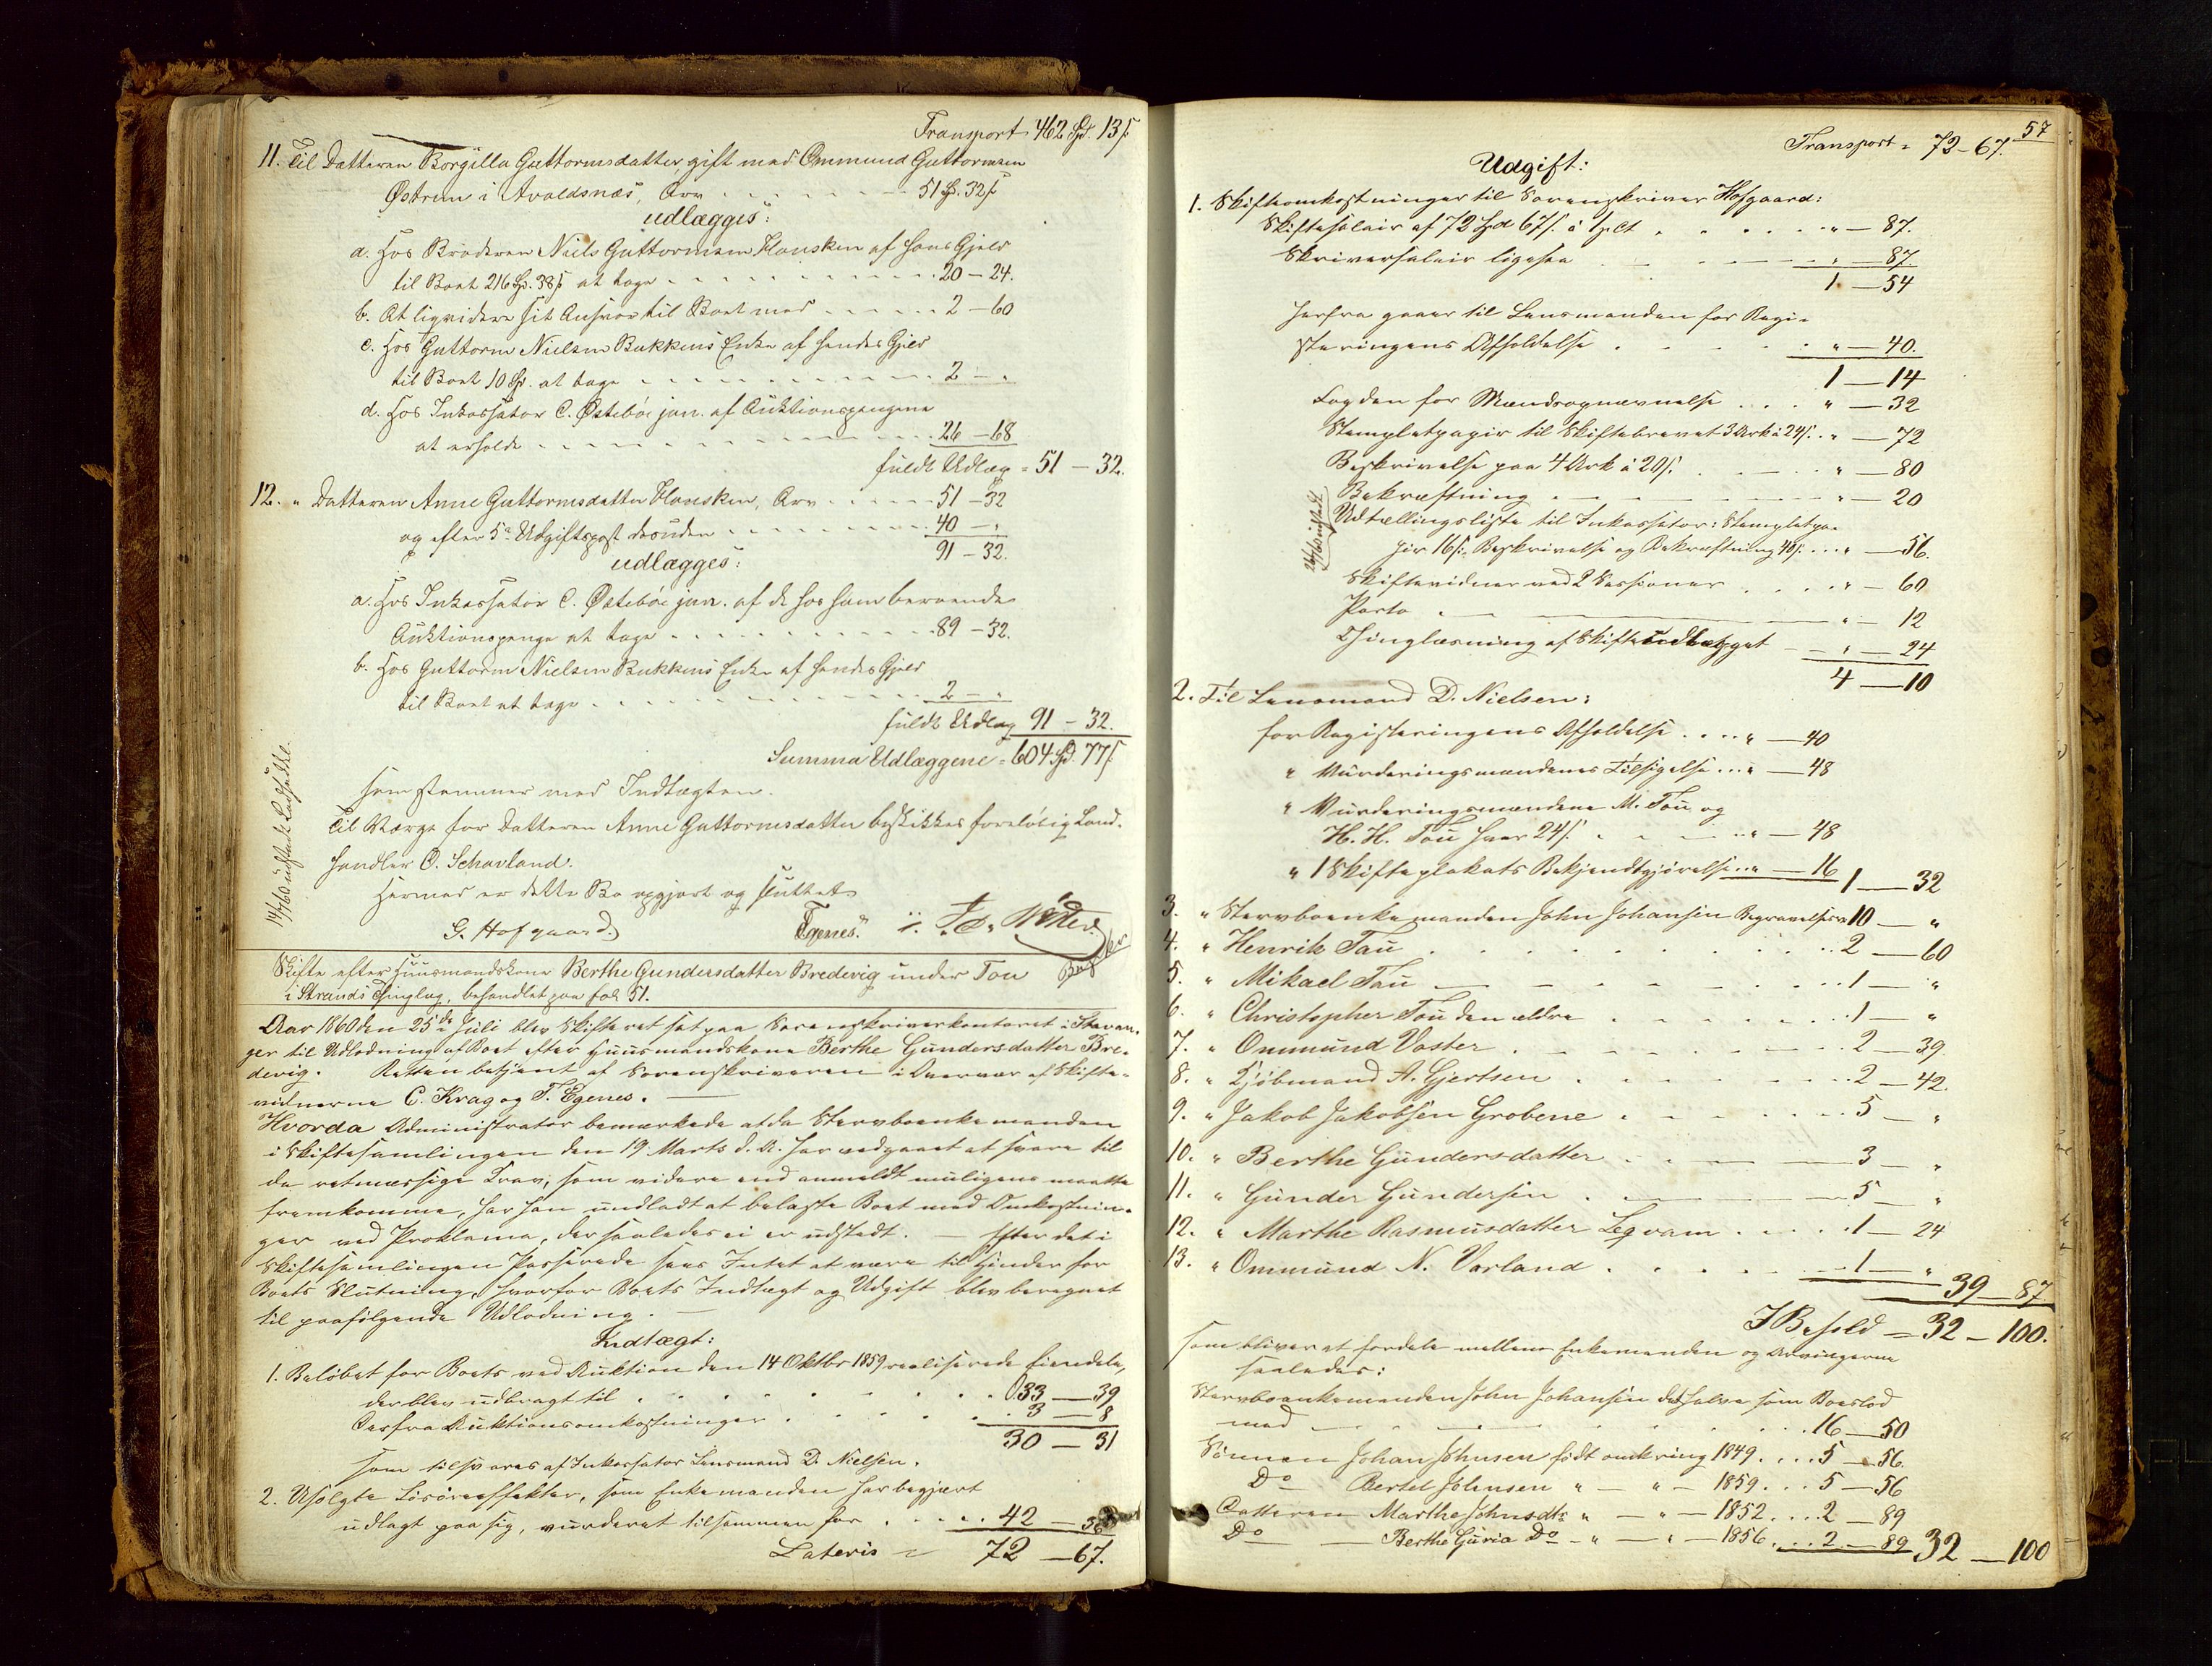 Transport 462 Spd. 13 s.
11. Til Datteren Borgilla Guttormsdatter gift med Ommund Guttormsen
Østrem i Avaldsnæs, Arv . . . . . 51 Sp. 32 s
udlægges:
a. Hos Broderen Niels Guttormsen Hausken af hans Gjeld
til Boet 216 Sp. 38 s at tage . . . . . 20 – 24.
b. At liqvidere sit Ansvar til Boet med . . . . . 2 – 60
c. Hos Guttorm Nielsen Bukkens Enke af hendes Gjeld
til Boet 10 Sp. at tage . . . . . 2 – "
d. Hos Inkassator C. Østeböe jun. af Auktionspengene
at erholde . . . . . 26 – 68
fuldt Udlæg = 51 – 32.
12. " Datteren Anne Guttormsdatter Hausken, Arv . . . . . 51 – 32
og efter 5te Udgiftspost desuden . . . . . 40 – "
91 – 32.
udlægges:
a. Hos Inkassator C. Østeböe jun. af de hos ham beroende
Auktionspenge at tage . . . . . 89 – 32.
b. Hos Guttorm Nielsen Bukkens Enke af hendes Gjeld
til Boet at tage . . . . . 2 – "
fuldt Udlæg 91 – 32.
Summa Udlæggene = 604 Spd. 77 s
som stemmer med Indtægten.
Til Værge for Datteren Anne Guttormsdatter beskikkes foreløbig Land-
handler O. Schavland.
Hermed er dette Bo opgjort og sluttet
G. Hofgaard
Egenes.
14/7 60 udstedt Lodsedle.
Skifte efter Huusmandskone Berthe Gundersdatter Bredevig under Tou
i Strands Thinglag, behandlet paa fol 51.
Aar 1860 den 25de Juli blev Skifteret sat paa Sorenskriverkontoret i Stavan-
ger til Udlodning af Boet efter Huusmandskone Berthe Gundersdatter Bre-
devig. Retten betjent af Sorenskriveren i Overvær af Skifte-
vidnerne C. Krag og T. Egenes. —
Hvorda Administrator bemærkede at da Stervboenkemanden
i Skiftesamlingen den 19 Marts d. A. har vedgaaet at svare til
de retmæssige Krav, som videre end anmeldt muligens maatte
fremkomme, har han undladt at belaste Boet med Omkostnin-
ger ved Proklama, der saaledes ei er udstedt. — Efter det i
Skiftesamlingen Passerede saaes Intet at være til Hinder for
Boets Slutning, hvorfor Boets Indtægt og Udgift blev beregnet
til paafølgende Udlodning. —
Indtægt:
1. Beløbet for Boets ved Auktion den 14 Oktbr 1859 realiserede Eiendele,
der blev udbragt til . . . . . 33 — 39
Derfra Auktionsomkostninger . . . . . 3 — 8
30 — 31
som tilsvares af Inkassator Lensmand D. Nielsen.
2. Usolgte Løsøreeffekter, som Enkemanden har begjært
udlagt paa sig, vurderet tilsammen for . . . . . 42 — 36
Lateris = 72 — 67.
57
Transport = 72 – 67.
Udgift:
1. Skifteomkostninger til Sorenskriver Hofgaard:
Skiftesalair af 72 Spd 67 s. à 1 pct . . . . . " — 87.
Skriversalair ligesaa . . . . . " — 87
1 — 54
herfra gaaer til Lensmanden for Regi-
steringens Afholdelse . . . . . " — 40.
1 — 14
Fogden for Mændsopnævnelse . . . " — 32
Stempletpapir til Skiftebrevet 3 Ark à 24 s. . " — 72
Beskrivelse paa 4 Ark à 20 s. . . . . " — 80
Bekræftning . . . . . " — 20
Udtællingsliste til Inkassator: Stempletpa-
pir 16 s. Beskrivelse og Bekræftning 40 s. . . " — 56.
Skiftevidner ved 2 Sessioner . . . . . " — 60
Porto . . . . . " — 12
Thinglæsning af Skifteudlægget . . " — 24
4 — 10
2. Til Lensmand D. Nielsen:
for Registeringens Afholdelse . . . . " — 40
" Vurderingsmændenes Tilsigelse . . . " — 48
" Vurderingsmændene M. Tou og
H. H. Tou hver 24 s. . . . . " — 48
" 1 Skifteplakats Bekjendtgjørelse . . " — 16 1 — 32
3. " Stervboenkemanden John Johansen Begravelse 10 — "
4. " Henrik Tau . . . . . 2 — 60
5. " Mikael Tau . . . . . 1 — "
6. " Christopher Tou den ældre . . . . . 1 — "
7. " Ommund Voster . . . . . 2 — 39
8. " Kjöbmand A. Gjertsen . . . . . 2 — 42.
9. " Jakob Jakobsen Grobene . . . . . 5 — "
10. " Berthe Gundersdatter . . . . . 3 — "
11. " Gunder Gundersen . . . . . 5 — "
12. " Marthe Rasmusdatter Legvam . . . . 1 — 24
13. " Ommund N. Varland . . . . . 1 — "
39 — 87
I Behold = 32 – 100.
som bliver at fordele mellem Enkemanden og Arvingerne
saaledes:
Stervboenkemanden John Johansen det halve som Boeslod
med . . . . . 16 — 50
Sönnen Johan Johnsen født omkring 1849 . . . . 5 — 56.
Do Bertel Johnsen " — " — 1859 . . . 5 — 56
Datteren Marthe Johnsdtr " — " — 1852 . . . . 2 — 89
Do — Berthe Guria Do – " — " — 1856 . . . 2 — 89 32 — 100